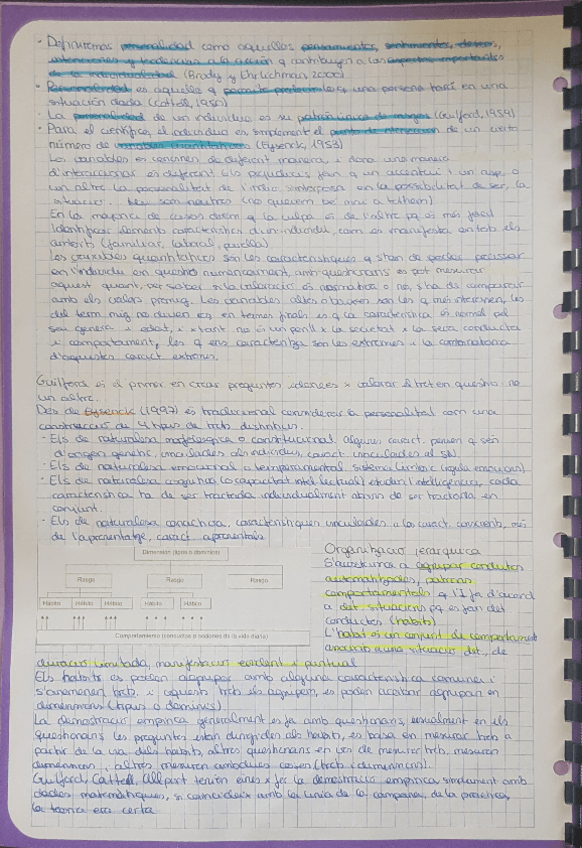 · Definiremos personalidad como aquellos pensamientos, sentimientos, deseos,
intenciones y tendencias a la acción q contribuyen a los aspectos importantes
de la individualidad (Brody y Ehrlichman, 2000)
· Personalidad es aquello q permite predecir lo q una persona hará en una
situación dada (Cattell, 1950)
· La personalidad de un individuo es su patrón único de rasgos (Guilford, 1959)
· Para el científico, el individuo es simplement el punto de intersección de un cierto
número de variables cuantitativas (Eysenck, 1953)
Les variables es concinen de diferent manera, i dona una manera
d'interaccionar es diferent
un altre la personalitat de l'indiv. en la possibilitat de ser, la
situació. No som neutres (no querem be aixi a tothom)
En la majoria de casos deiem q la culpa es de l'altre pq es més fàcil
Identificar elements característics d'un individu, com es manifesta en tots els
àmbits (familiar, laboral, parella)
Les variables quantitatives són les característiques q s'han de
en l'individu en questió numèricament, amb questionaris es pot mesurar
aquest quant, per saber si la valoració és normativa o no, s'ha de comparar
amb els valors promig. Les variables altes o baixes son les q més interessen, les
del terme mig no diuen res en termes finals es q la característica es normal pel
seu genere i edat, i x tant no és un perill x la societat x la seva conducta
i comportament, les q ens caracteritza són les extremes i la
d'aquestes caract extremes.
Guilford és el primer en crear preguntes x valorar si tret en questió no
un altre.
Des de Eysenck (1997) es tradicional considerar la personalitat com una
construcció de 4 tipus de trets distintius.
· Els de naturalesa morfologica o constitucional algunes caract. pensen q són
d'origen genètic, vinculades als individus, caract vinculades al SN.
· Els de naturalesa emocional o temperamental. sistema límbic (regula emocions).
· Els de naturalesa cognitiva (o capacitat intel·lectual) estudien l intel·ligència, cada
característica ha de ser tractada individualment abans de ser tractada en
conjunt.
· Els de naturalesa conativa, característiques vinculades a les caract. més
de l'aprenentatge, caract. aprenentatge
Dimensión (tipos o dominios)
Rasgo Rasgo Rasgo
Hábito Hábito Hábito Hábito Hábito
Comportamientos (conductas o sesiones de la vida diaria)
Organització jerarquica
S'acostuma a agrupar conductes
automatitzades, patrons
comportamentals q l'I fa d'acord
a det. situacions pq es fan det
conductes (hàbits)
L'hàbit és un conjunt de comportament
associats a una situació det., de
duració limitada, manifestació evident i puntual
Els hàbits es poden agrupar amb alguna característica comuna i
s'anomenen trets, i aquests trets els agrupem, es poden acabar agrupan en
dimensions (tipus o dominis)
La demostració empírica generalment es fa amb questionaris, usualment en els
questionaris les preguntes estan dirigides als hàbits, es basa en mesurar trets a
partir de la via dels hàbits, altres questionaris en ves de mesurar trets, mesuren
dimensions, altres mesuren ambdues coses (trets i dimensions).
Guilford, Cattell, Allport tenien eines x fer la demostració empirica, simplement amb
dades matemàtiques, si coincideix amb la línia de la de la practica,
la teoria era certa